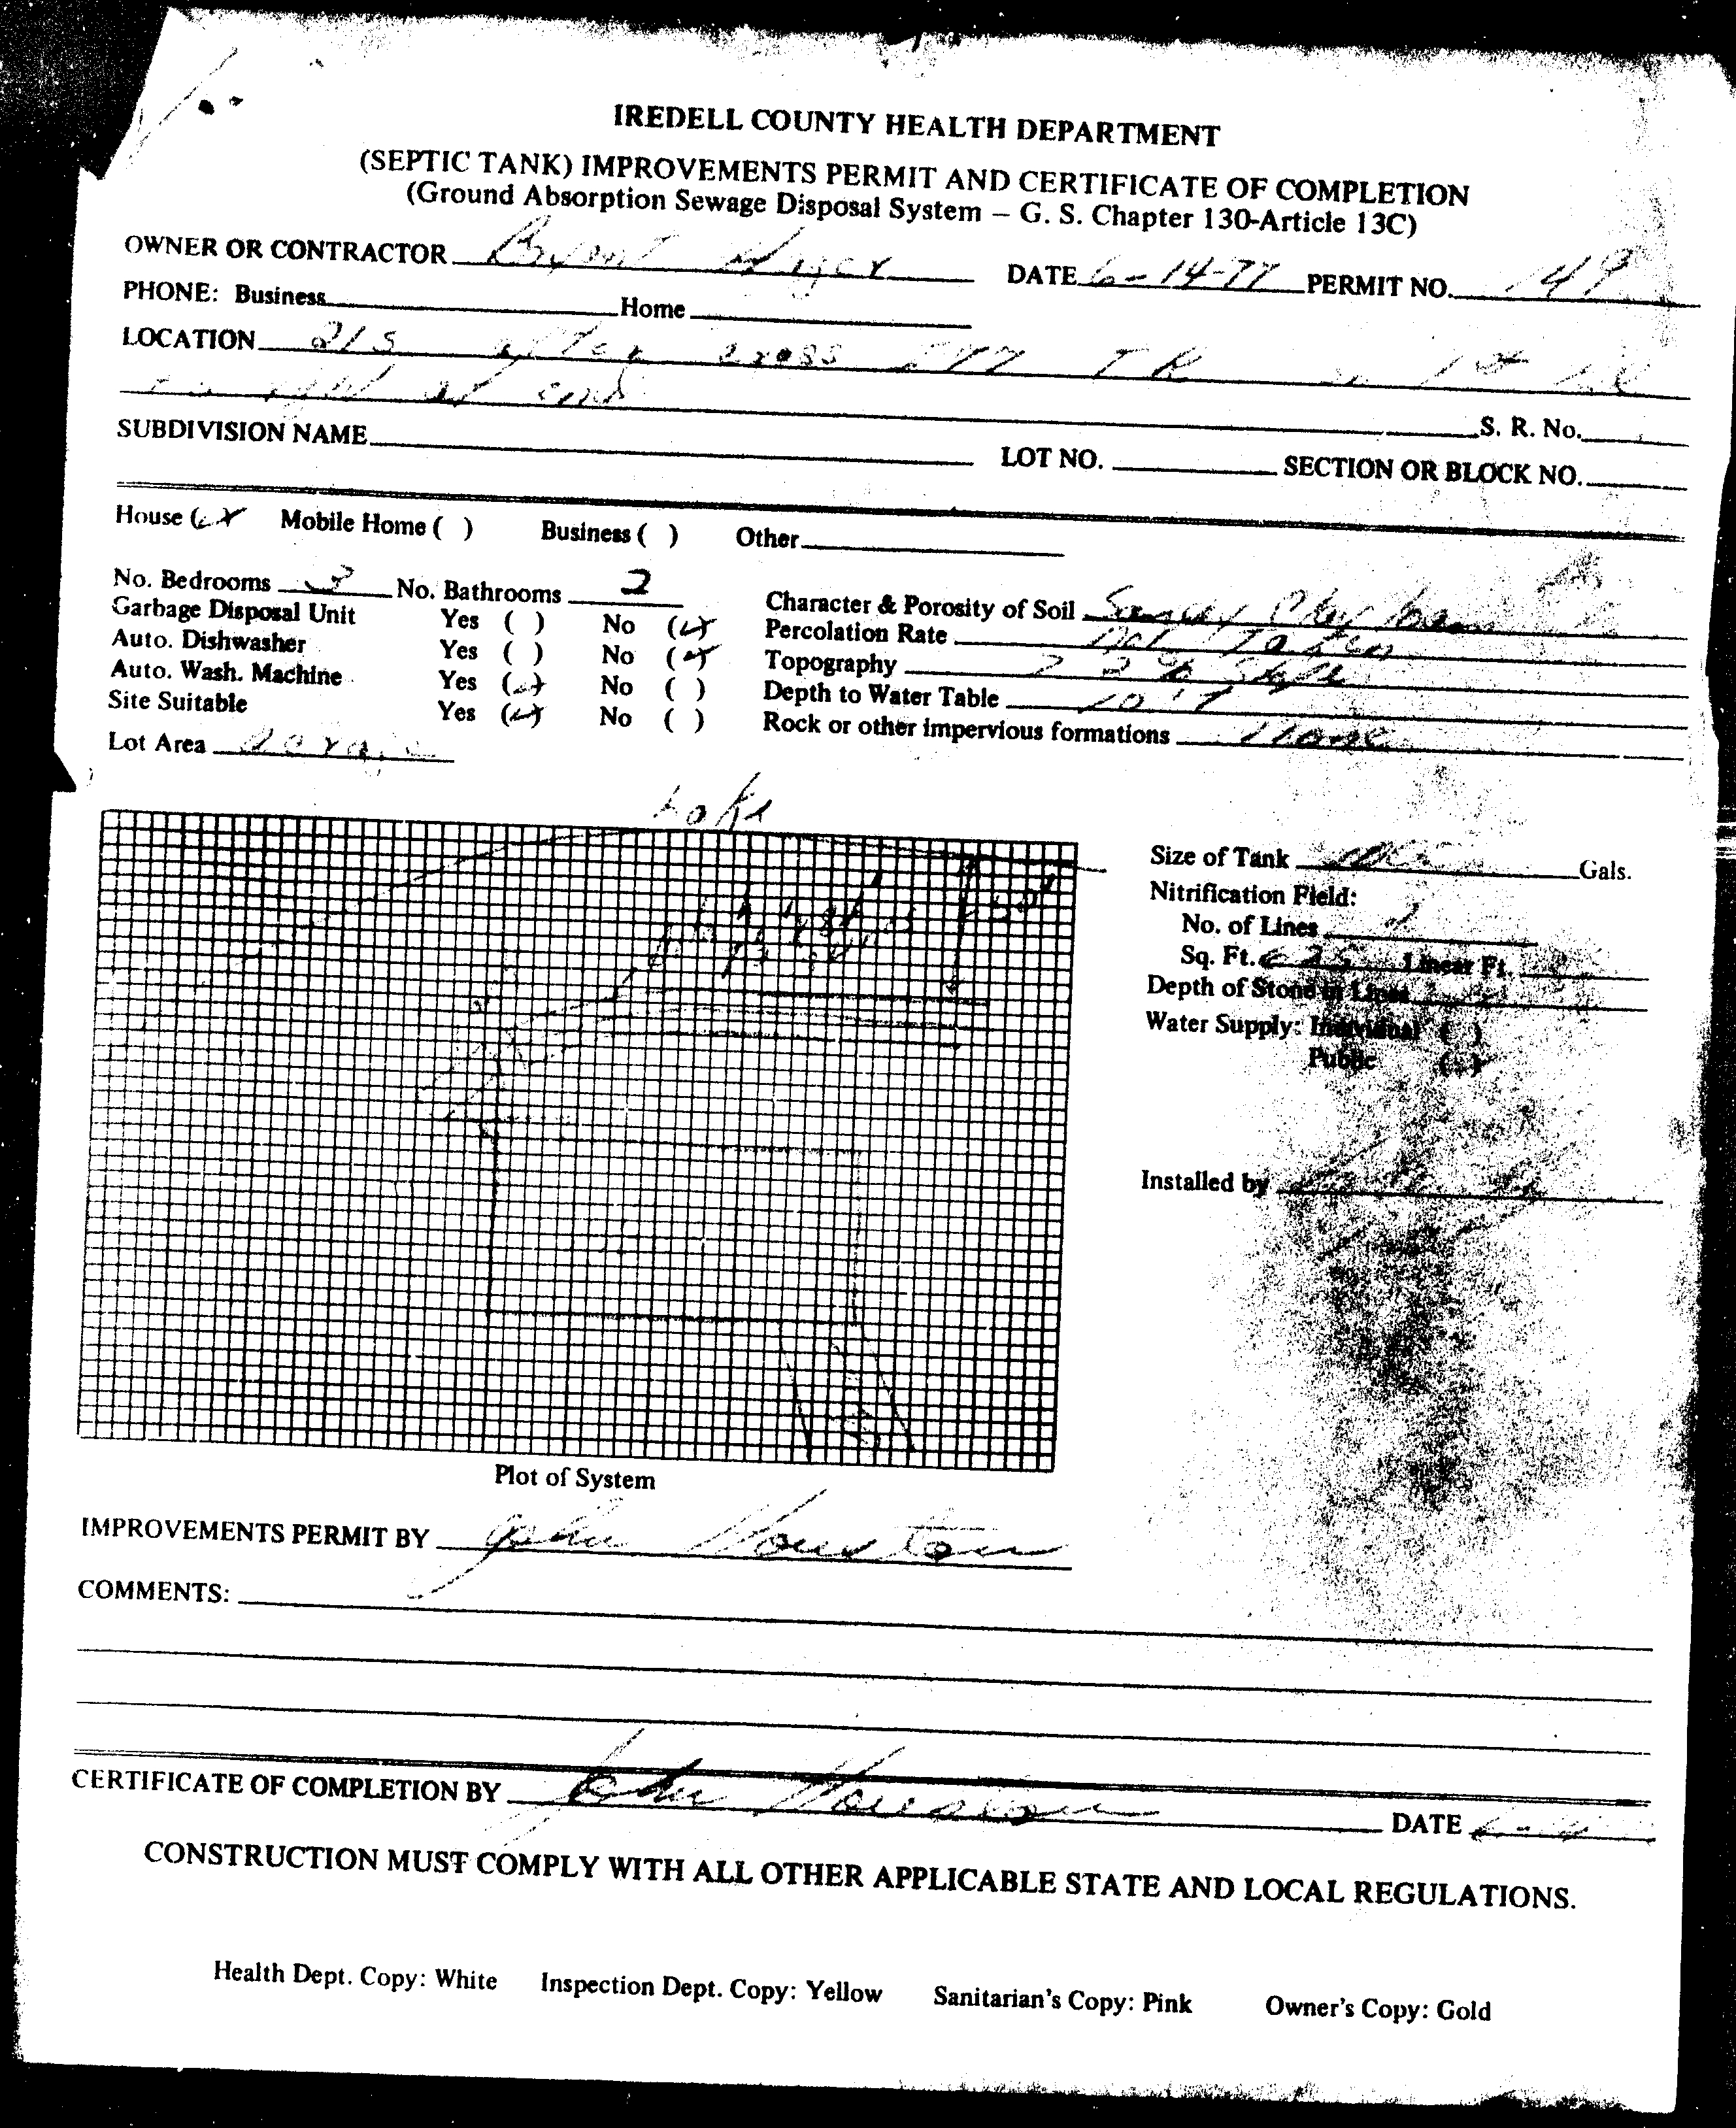 IREDELL COUNTY HEALTH DEPARTMENT
(SEPTIC TANK) IMPROVEMENTS PERMIT AND CERTIFICATE OF COMPLETION
(Ground Absorption Sewage Disposal System – G. S. Chapter 130-Article 13C)
OWNER OR CONTRACTOR DATE 6-14-77 PERMIT NO. 149
PHONE: Business Home
LOCATION 21S after cross I77 TR 1st
to right at end
S. R. No.
SUBDIVISION NAME LOT NO. SECTION OR BLOCK NO.
House (X Mobile Home ( ) Business ( ) Other
No. Bedrooms 3 No. Bathrooms 2 Character & Porosity of Soil Sandy Clay loam
Garbage Disposal Unit Yes ( ) No (X) Percolation Rate not Taken
Auto. Dishwasher Yes ( ) No (X) Topography 2% Slope
Auto. Wash. Machine Yes (X) No ( ) Depth to Water Table 10'+
Site Suitable Yes (X) No ( ) Rock or other impervious formations None
Lot Area
Lake
Size of Tank Gals.
Nitrification Field:
No. of Lines
Sq. Ft. Linear Ft.
Depth of Stone in Lines
Water Supply: Individual ( )
Public
Installed by
Plot of System
IMPROVEMENTS PERMIT BY John Houston
COMMENTS:
CERTIFICATE OF COMPLETION BY John Houston DATE
CONSTRUCTION MUST COMPLY WITH ALL OTHER APPLICABLE STATE AND LOCAL REGULATIONS.
Health Dept. Copy: White Inspection Dept. Copy: Yellow Sanitarian's Copy: Pink Owner's Copy: Gold